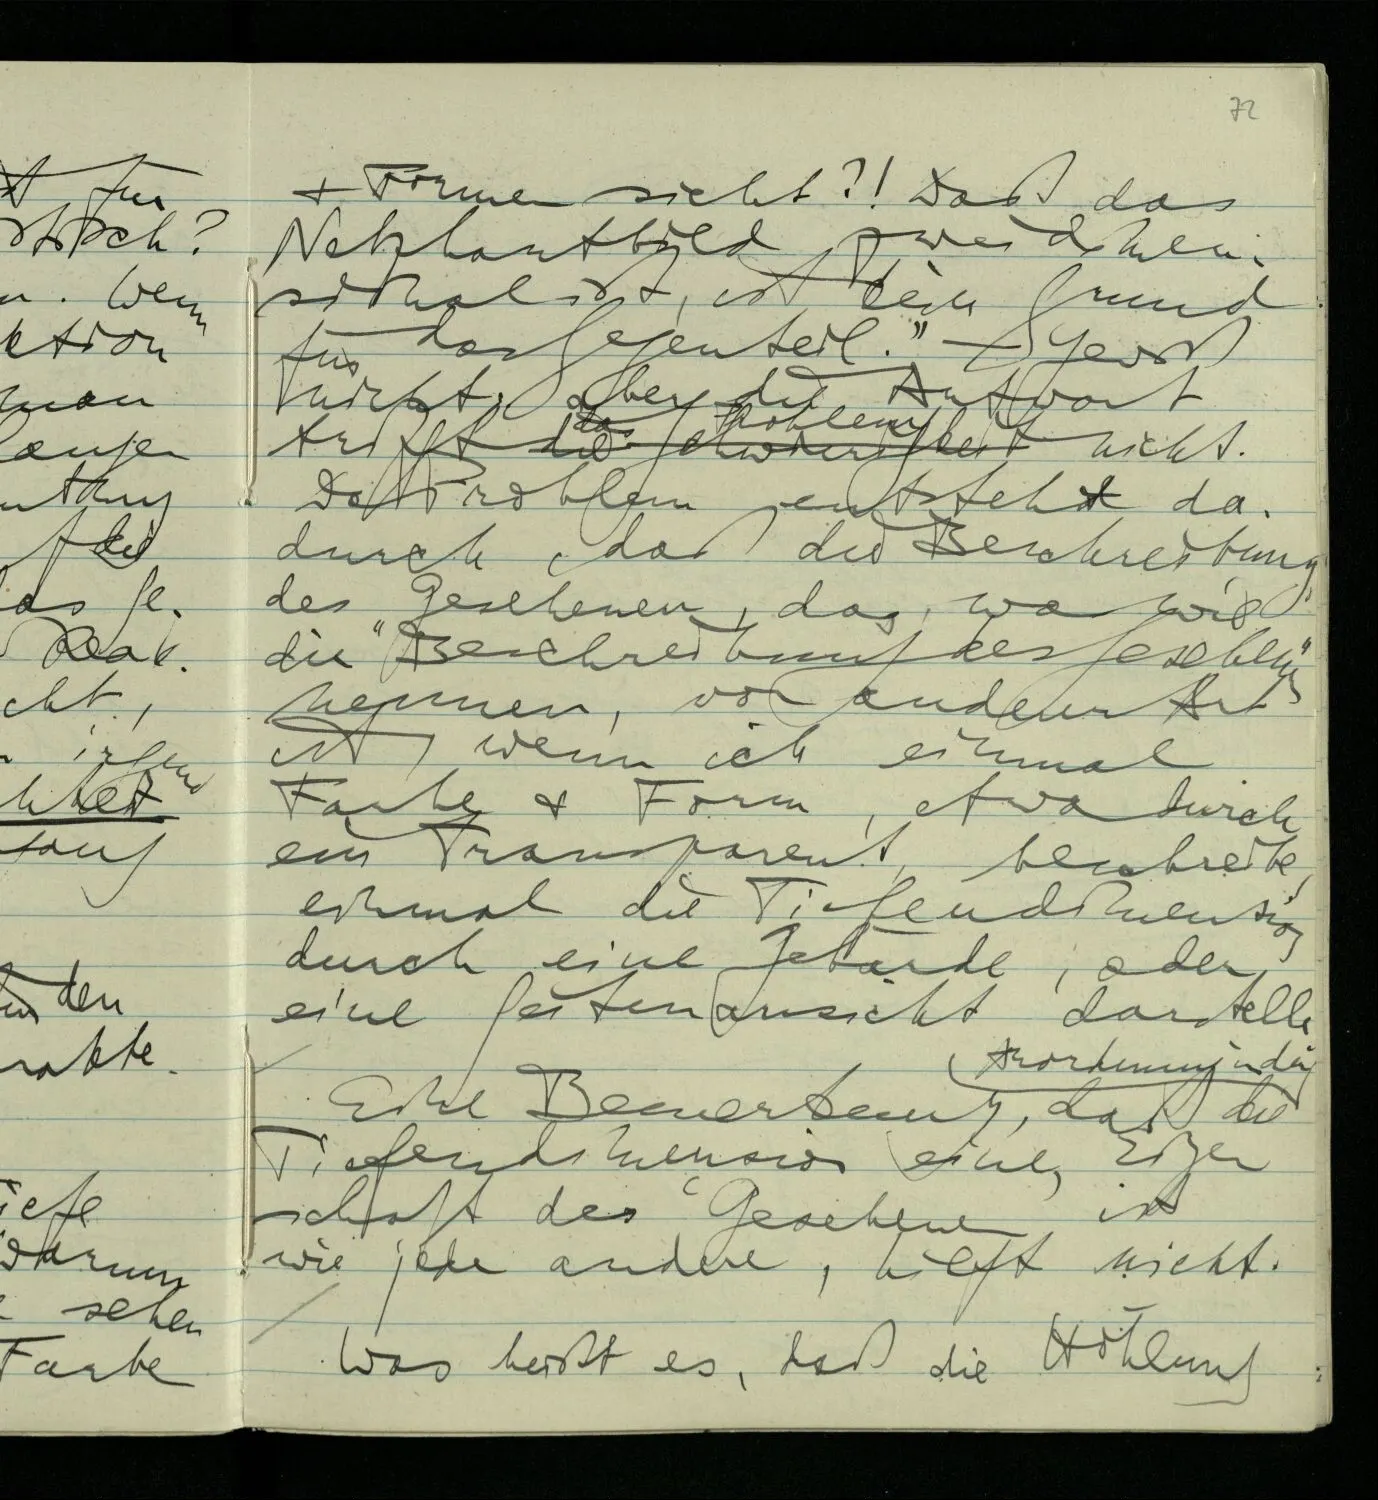 t für
isch?
n. Wenn
ktion
man
langen
f die
das Ge-
Reak-
cht,
n irgend
den
rakte.
iefe
warum
sehen
Farbe
72
+ Formen sieht?! Daß das
Netzhautbild zweidimen-
sional ist, ist kein Grund
für das Gegenteil." – Gewiß
nicht; aber die Antwort
das Problem
trifft die Schwierigkeit nicht.
Das Problem entsteht da-
durch, daß die Beschreibung
des Gesehenen, das, was wir
die "Beschreibung des Gesehenen"
nennen, von anderer Art
ist, wenn ich einmal
Farbe + Form, etwa durch
ein Transparent, beschreibe,
einmal die Tiefendimension
durch eine Gebärde, oder
eine Seitenansicht darstelle
Anordnung in der
Eine Bemerkung, daß die
Tiefendimension eine Eigen
schaft des 'Gesehenen' ist
wie jede andere, hilft nicht.
Was heißt es, daß die Höhlung